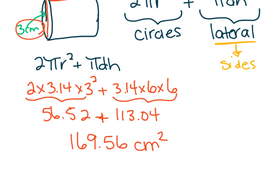 2πr² + πdh
3cm
circles lateral
sides
2πr² + πdh
2 x 3.14 x 3² + 3.14 x 6 x 6
56.52 + 113.04
169.56 cm²